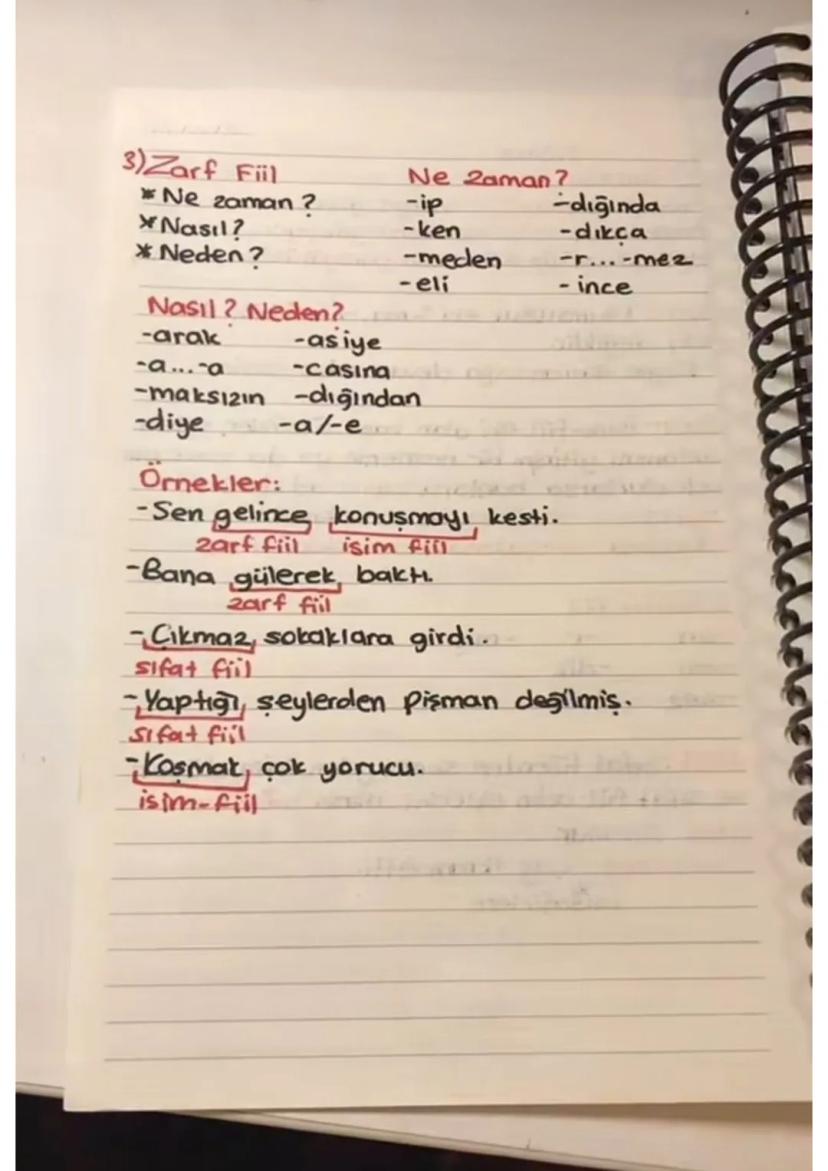 3) Zarf Fiil Ne Zaman?
* Ne zaman? -ip -dığında
* Nasıl? -ken -dıkça
* Neden? -meden -r...-mez
-eli -ince
Nasıl? Neden?
-arak -asiye
-a...-a -casına
-maksızın -dığından
-diye -a/-e
Örnekler:
-Sen gelince konuşmayı kesti.
zarf fiil isim fiil
-Bana gülerek baktı.
zarf fiil
-Çıkmaz sokaklara girdi.
sıfat fiil
-Yaptığı şeylerden pişman değilmiş.
sıfat fiil
-Koşmak çok yorucu.
isim-fiil